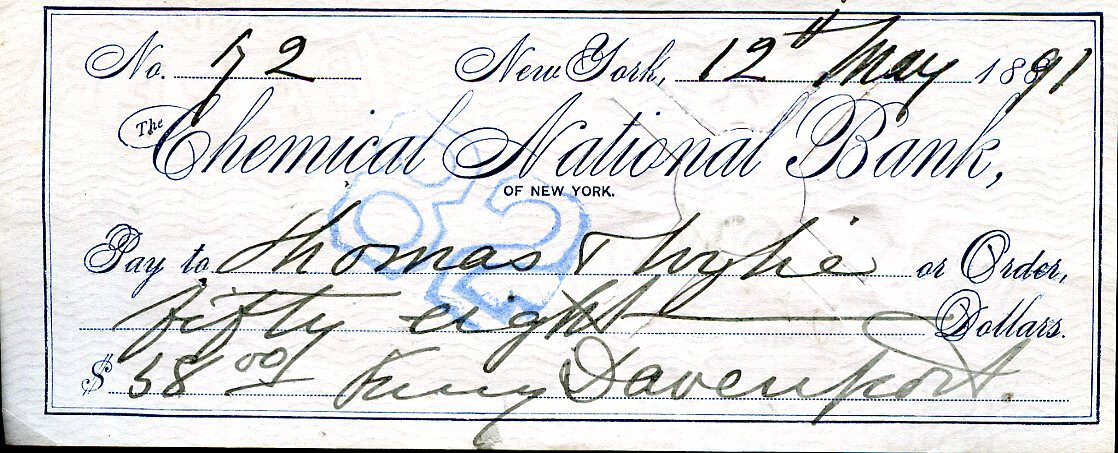 No. 72 New York, 12th May 1891
The Chemical National Bank,
OF NEW YORK.
Pay to Thomas & Wylie or Order,
fifty eight Dollars.
$ 58 00 Fanny Davenport.